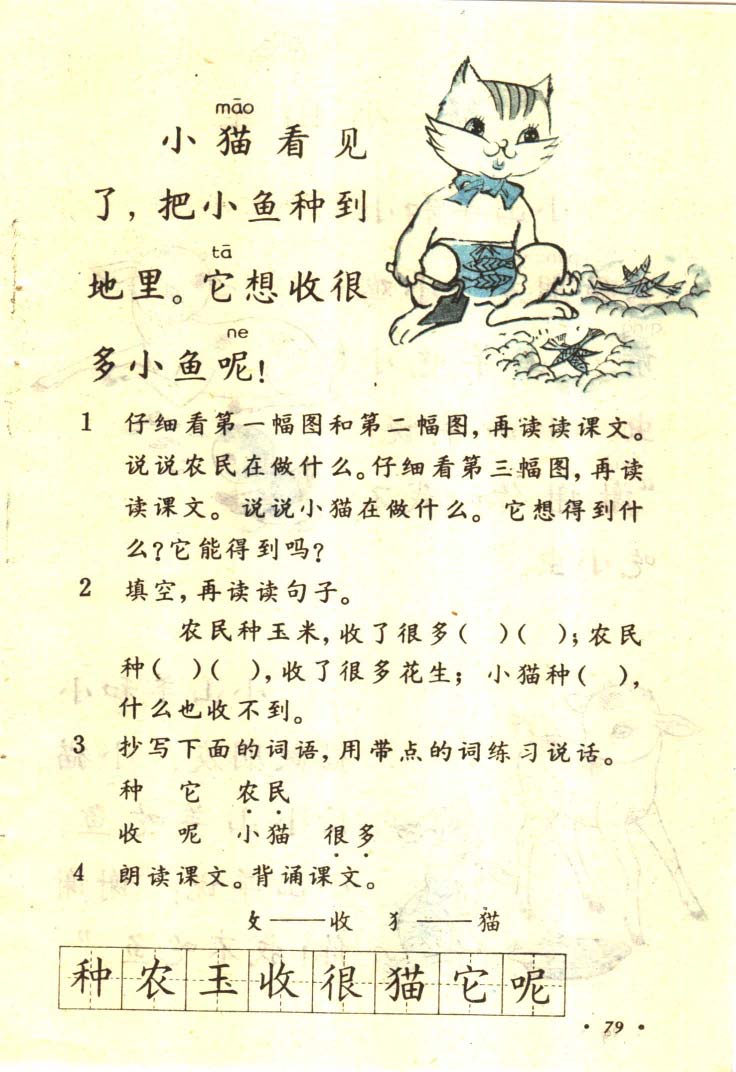 māo
小猫看见
了，把小鱼种到
tā
地里。它想收很
ne
多小鱼呢！
1 仔细看第一幅图和第二幅图，再读读课文。
说说农民在做什么。仔细看第三幅图，再读
读课文。说说小猫在做什么。它想得到什
么？它能得到吗？
2 填空，再读读句子。
农民种玉米，收了很多（ ）（ ）；农民
种（ ）（ ），收了很多花生；小猫种（ ），
什么也收不到。
3 抄写下面的词语，用带点的词练习说话。
种 它 农民
收 呢 小猫 很多
4 朗读课文。背诵课文。
攵——收 犭——猫
种农玉收很猫它呢
· 79 ·